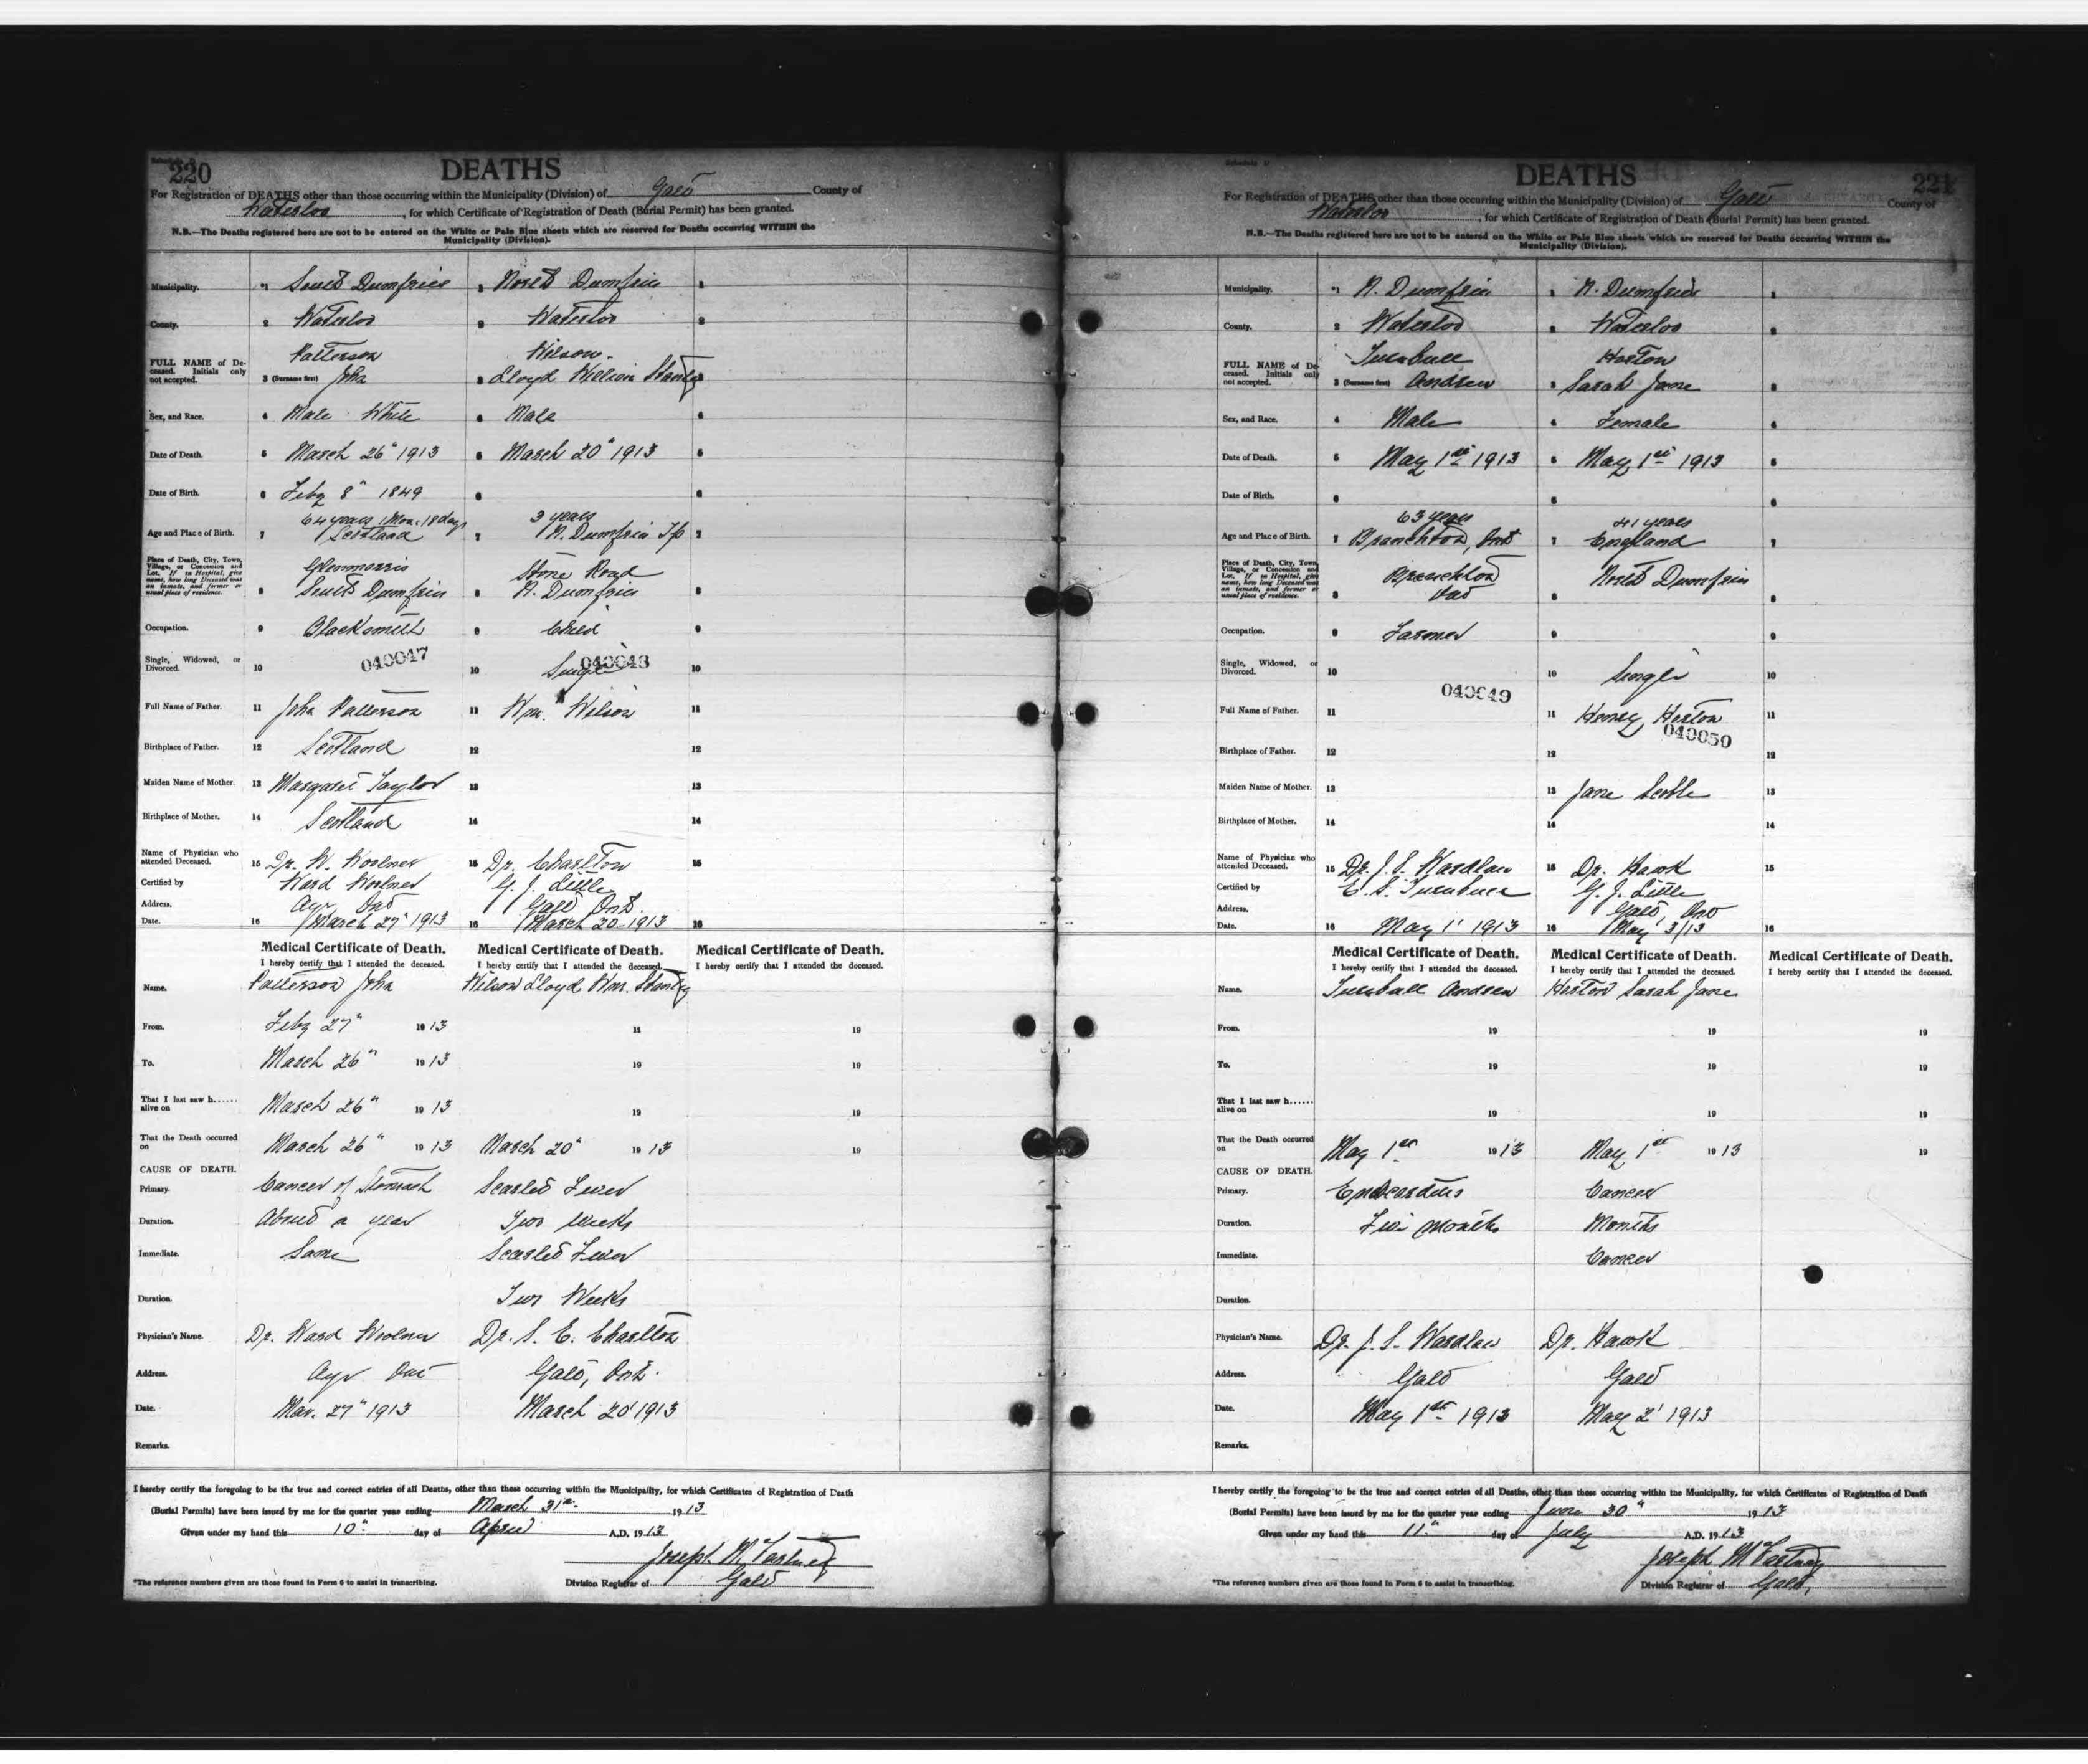 Schedule D
220
DEATHS
For Registration of DEATHS other than those occurring within the Municipality (Division) of Galt County of
Waterloo, for which Certificate of Registration of Death (Burial Permit) has been granted.
N.B.—The Deaths registered here are not to be entered on the White or Pale Blue sheets which are reserved for Deaths occurring WITHIN the
Municipality (Division).
Municipality. *1 South Dumfries 1 North Dumfries 1
County. 2 Waterloo 2 Waterloo 2
Patterson Wilson.
FULL NAME of Deceased. Initials only not accepted. 3 (Surname first) John 3 Lloyd William Stanley 3
Sex, and Race. 4 Male White 4 Male 4
Date of Death. 5 March 26" 1913 5 March 20" 1913 5
Date of Birth. 6 Feby 8" 1849 6 6
64 years 1 Mon. 18 days 3 years
Age and Place of Birth. 7 Scotland 7 N. Dumfries Tp 7
Place of Death, City, Town, Village, or Concession and Lot. If in Hospital, give name, how long Deceased was an inmate, and former or usual place of residence.
Glenmorris Stone Road
8 South Dumfries 8 N. Dumfries 8
Occupation. 9 Blacksmith 9 Child 9
Single, Widowed, or Divorced. 10 040047 10 Single 040048 10
Full Name of Father. 11 John Patterson 11 Wm. Wilson 11
Birthplace of Father. 12 Scotland 12 12
Maiden Name of Mother. 13 Margaret Taylor 13 13
Birthplace of Mother. 14 Scotland 14 14
Name of Physician who attended Deceased. 15 Dr. W. Woolner 15 Dr. Charlton 15
Certified by Ward Woolner G. J. Little
Address. Ayr Ont Galt Ont.
Date. 16 March 27" 1913 16 March 20-1913 16
Medical Certificate of Death. Medical Certificate of Death. Medical Certificate of Death.
I hereby certify that I attended the deceased. I hereby certify that I attended the deceased. I hereby certify that I attended the deceased.
Name. Patterson John Wilson Lloyd Wm. Stanley
From. Feby 27" 1913 11 19
To. March 26" 1913 19 19
That I last saw h...... alive on March 26" 1913 19 19
That the Death occurred on March 26" 1913 March 20" 1913 19
CAUSE OF DEATH.
Primary. Cancer of Stomach Scarlet Fever
Duration. About a year Two weeks
Immediate. Same Scarlet Fever
Duration. Two Weeks
Physician's Name. Dr. Ward Woolner Dr. S. E. Charlton
Address. Ayr Ont Galt, Ont.
Date. Mar. 27" 1913 March 20' 1913
Remarks.
I hereby certify the foregoing to be the true and correct entries of all Deaths, other than those occurring within the Municipality, for which Certificates of Registration of Death
(Burial Permits) have been issued by me for the quarter year ending March 31st 1913
Given under my hand this 10" day of April A.D. 1913
Joseph McCartney
*The reference numbers given are those found in Form 6 to assist in transcribing. Division Registrar of Galt
Schedule D
221
DEATHS
For Registration of DEATHS other than those occurring within the Municipality (Division) of Galt County of
Waterloo, for which Certificate of Registration of Death (Burial Permit) has been granted.
N.B.—The Deaths registered here are not to be entered on the White or Pale Blue sheets which are reserved for Deaths occurring WITHIN the
Municipality (Division).
Municipality. *1 N. Dumfries 1 N. Dumfries 1
County. 2 Waterloo 2 Waterloo 2
Turnbull
FULL NAME of Deceased. Initials only not accepted. 3 (Surname first) Andrew 3 Sarah Jane 3
Sex, and Race. 4 Male 4 Female 4
Date of Death. 5 May 1st 1913 5 May 1st 1913 5
Date of Birth. 6 6 6
63 years 41 years
Age and Place of Birth. 7 Branchton, Ont 7 England 7
Place of Death, City, Town, Village, or Concession and Lot. If in Hospital, give name, how long Deceased was an inmate, and former or usual place of residence.
Branchton North Dumfries
8 Ont 8 8
Occupation. 9 Farmer 9 9
Single, Widowed, or Divorced. 10 10 Single 10
040049
Full Name of Father. 11 11 Henry 11
040050
Birthplace of Father. 12 12 12
Maiden Name of Mother. 13 13 Jane 13
Birthplace of Mother. 14 14 14
Name of Physician who attended Deceased. 15 Dr. J. S. Wardlaw 15 Dr. Hawk 15
Certified by E. S. Turnbull G. J. Little
Address. Galt, Ont
Date. 16 May 1' 1913 16 May 3/13 16
Medical Certificate of Death. Medical Certificate of Death. Medical Certificate of Death.
I hereby certify that I attended the deceased. I hereby certify that I attended the deceased. I hereby certify that I attended the deceased.
Name. Turnbull Andrew Sarah Jane
From. 19 19 19
To. 19 19 19
That I last saw h...... alive on 19 19 19
That the Death occurred on May 1st 1913 May 1st 1913 19
CAUSE OF DEATH.
Primary. Endocarditis Cancer
Duration. Months
Immediate. Cancer
Duration.
Physician's Name. Dr. J. S. Wardlaw Dr. Hawk
Address. Galt Galt
Date. May 1st 1913 May 2' 1913
Remarks.
I hereby certify the foregoing to be the true and correct entries of all Deaths, other than those occurring within the Municipality, for which Certificates of Registration of Death
(Burial Permits) have been issued by me for the quarter year ending June 30" 1913
Given under my hand this 11" day of July A.D. 1913
Joseph McCartney
*The reference numbers given are those found in Form 6 to assist in transcribing. Division Registrar of Galt.